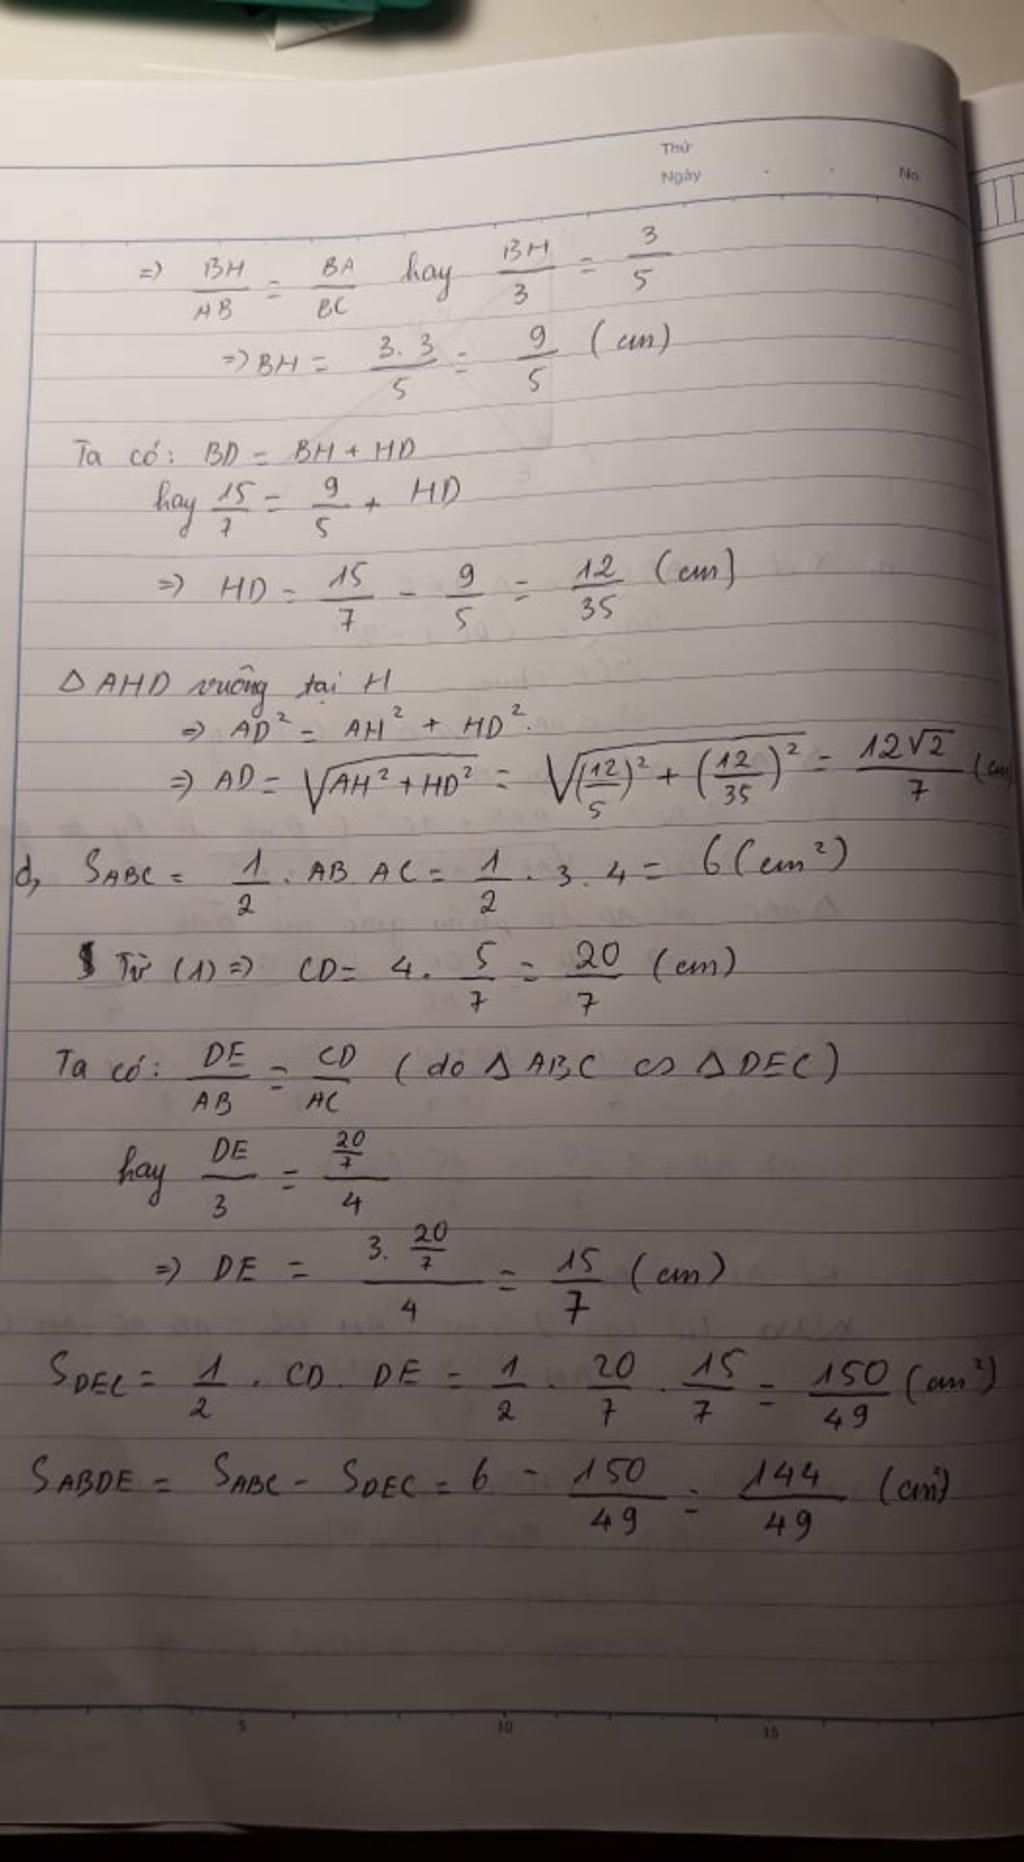 Thứ
Ngày . . No.
=> BH/AB = BA/BC hay BH/3 = 3/5
=> BH = 3.3/5 = 9/5 (cm)
Ta có: BD = BH + HD
hay 15/7 = 9/5 + HD
=> HD = 15/7 - 9/5 = 12/35 (cm)
Δ AHD vuông tại H
=> AD² = AH² + HD².
=> AD = √(AH² + HD²) = √((12/5)² + (12/35)²) = 12√2/7 (cm
d, SABC = 1/2 . AB . AC = 1/2 . 3 . 4 = 6 (cm²)
Từ (1) => CD = 4 . 5/7 = 20/7 (cm)
Ta có: DE/AB = CD/AC (do Δ ABC ∽ Δ DEC)
hay DE/3 = (20/7)/4
=> DE = (3 . 20/7)/4 = 15/7 (cm)
SDEC = 1/2 . CD . DE = 1/2 . 20/7 . 15/7 = 150/49 (cm²)
SABDE = SABC - SDEC = 6 - 150/49 = 144/49 (cm²)
5 10 15